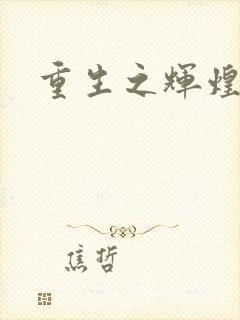 重生之辉煌
焦哲